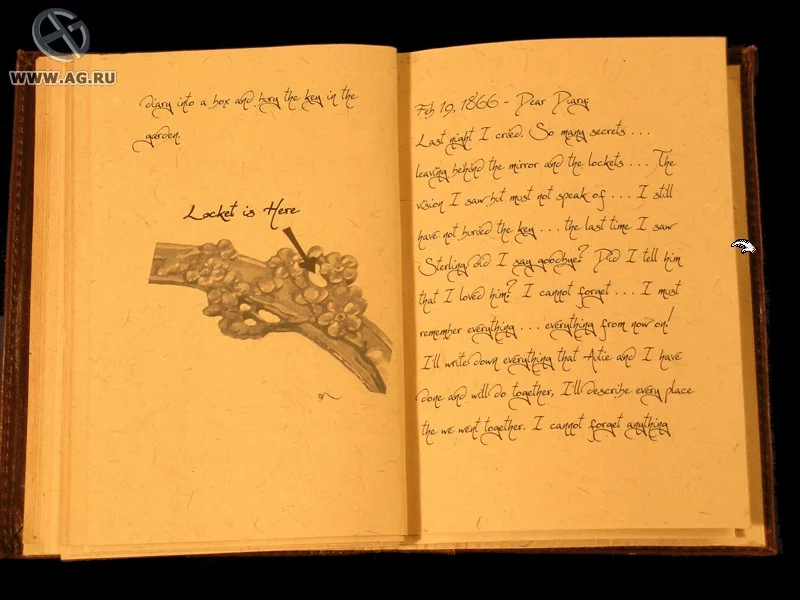 WWW.AG.RU
diary into a box and bury the key in the
garden.
Locket is Here
Feb 19, 1866 - Dear Diary;
Last night I cried. So many secrets ...
leaving behind the mirror and the lockets ... The
vision I saw but must not speak of ... I still
have not buried the key ... the last time I saw
Sterling did I say goodbye? Did I tell him
that I loved him? I cannot forget ... I must
remember everything ... everything from now on!
I'll write down everything that Artie and I have
done and will do together, I'll describe every place
the we went together. I cannot forget anything